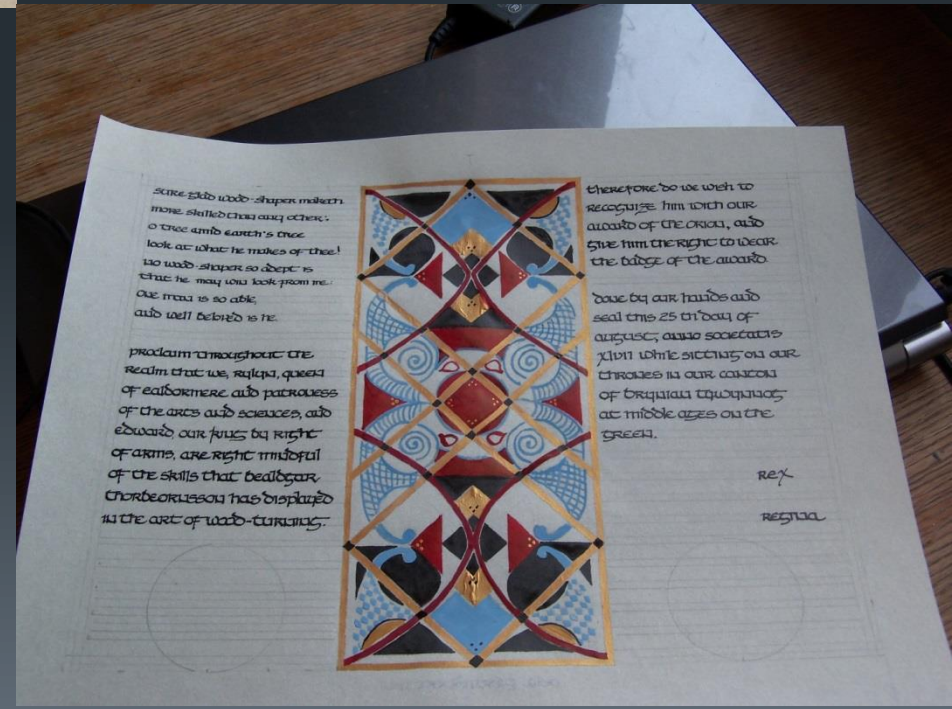 sure glad wood-shaper maketh
more skilled than any other;
o tree amid earth's tree
look at what he makes of thee!
no wood-shaper so adept is
that he may win look from me
one man is so able,
and well beloved is he.
proclaim throughout the
realm that we, rylyn, queen
of ealdormere and patroness
of the arts and sciences, and
edward, our king by right
of arms, are right mindful
of the skills that
has displayed
in the art of wood-turning.
therefore do we wish to
recognize him with our
award of the orion, and
give him the right to wear
the badge of the award.
done by our hands and
seal this 25th day of
august, anno societatis
xlvii while sitting on our
thrones in our canton
of
at middle ages on the
green.
Rex
Regina